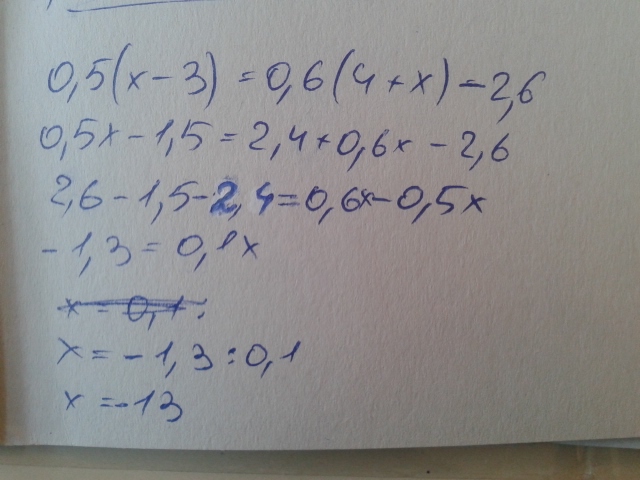 0,5(x-3)=0,6(4+x)-2,6
0,5x-1,5=2,4+0,6x-2,6
2,6-1,5-2,4=0,6x-0,5x
-1,3=0,1x
x=0,1:
x=-1,3:0,1
x=-13